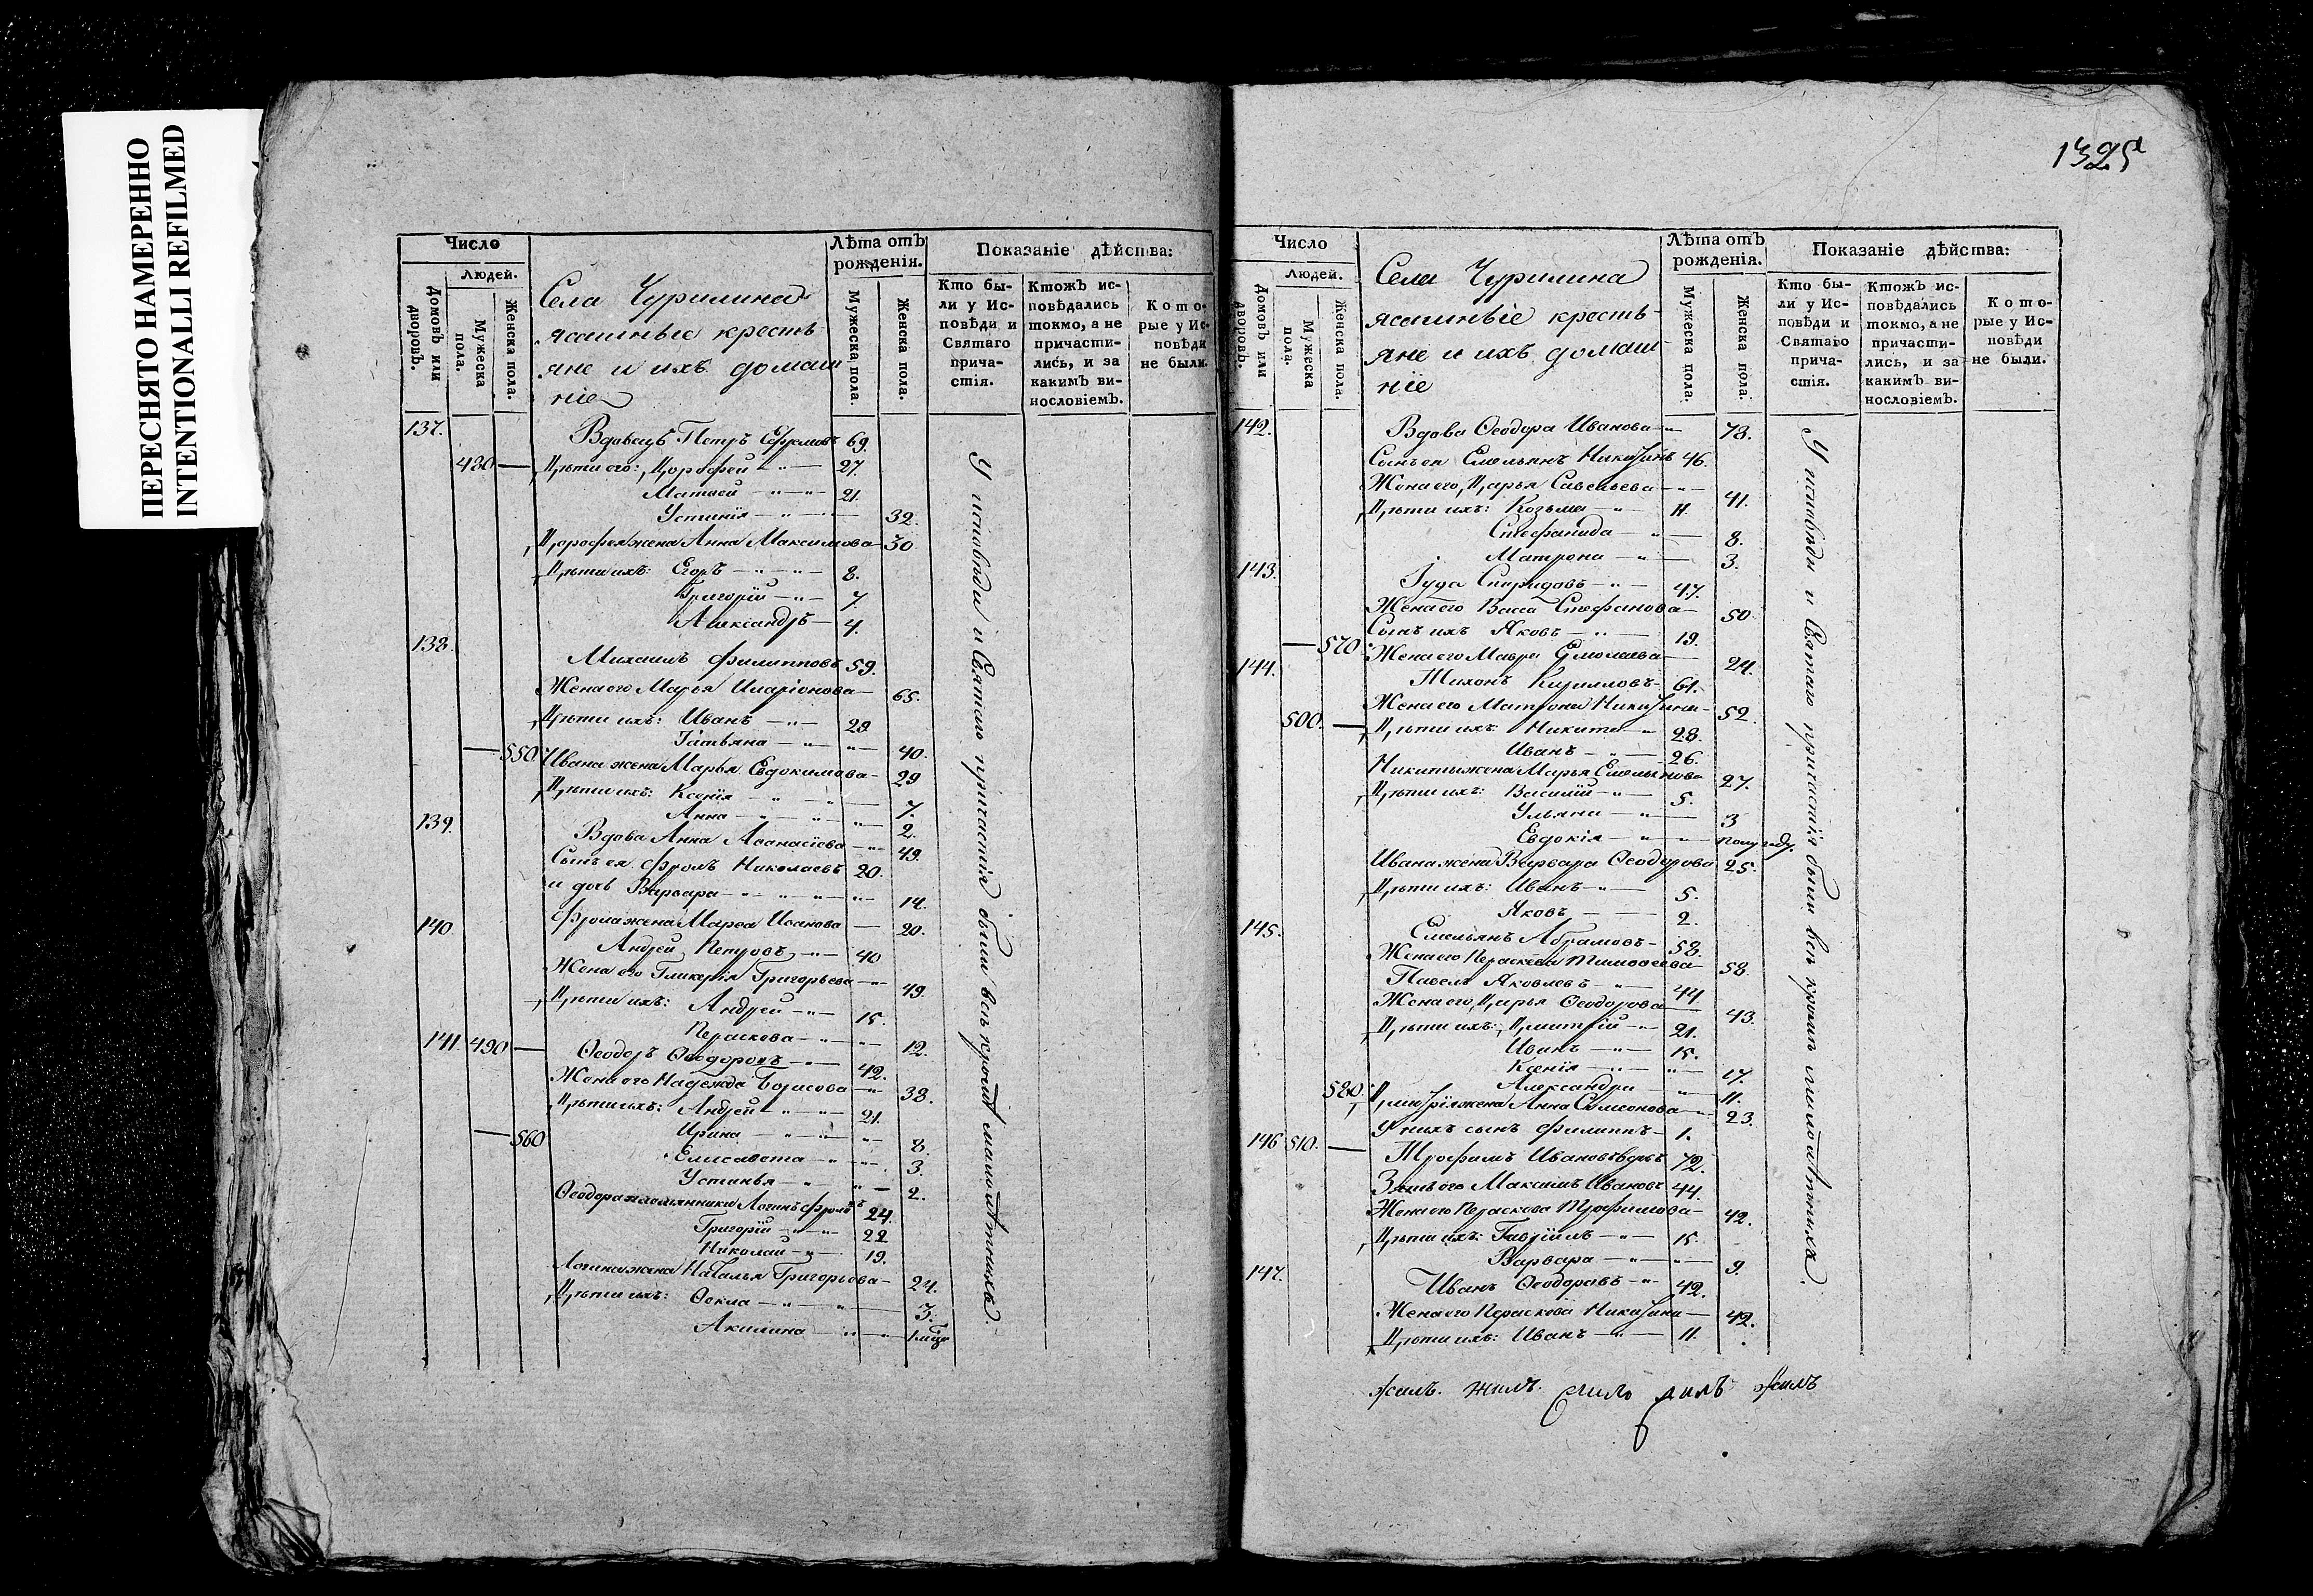 ПЕРЕСНЯТО НАМЕРЕННО
INTENTIONALLI REFILMED
Число
Людей.
Домовъ или дворовъ.
Мужеска пола.
Женска пола.
Села Чурилина
ясашные кресть-
яне и ихъ домаш
ніе
Лѣта отъ рожденія.
Мужеска пола.
Женска пола.
Показаніе дѣйства:
Кто бы-
ли у Ис-
повѣди и
Святаго
прича-
стія.
Ктожъ ис-
повѣдались
токмо, а не
причасти-
лись, и за
какимъ ви-
нословіемъ.
Кото-
рые у Ис-
повѣди
не были.
137. Вдовецъ Петръ Ефремовъ 69.
480 — Дѣти его: Дорофей 27.
Матвей 21.
Устинія 32.
Дорофея жена Анна Максимова 30
Дѣти ихъ: Егоръ 8.
Григорій 7.
Александръ 4.
138. Михаилъ Филипповъ 59.
Жена его Марья Иларіонова 65.
Дѣти ихъ: Иванъ 29
Татьяна 40.
— 550 Ивана жена Марья Евдокимова 29
Дѣти ихъ: Ксенія 7.
Анна 2.
139. Вдова Анна Аѳанасіева 49.
Сынъ ея Фролъ Николаевъ 20.
и дочь Варвара 14.
Фрола жена Марѳа Иванова 20.
140 Андрей Петровъ 40
Жена его Гликерія Григорьева 49.
Дѣти ихъ: Андрей 15.
Пераскева 12.
141. 490 — Ѳеодоръ Ѳеодоровъ 42.
Жена его Надежда Борисова 38.
Дѣти ихъ: Андрей 21.
Ирина 8.
— 560 Елисавета 3.
Устинья 2.
Ѳеодора племянники Логинъ Фроловъ 24.
Григорій 22
Николай 19.
Логина жена Наталья Григорьева 24.
Дѣти ихъ: Ѳекла 3.
Акилина
У исповѣди и Святаго причастія были всѣ кромѣ малолѣтныхъ.
1325
Число
Людей.
Домовъ или дворовъ.
Мужеска пола.
Женска пола.
Села Чурилина
ясашныіе кресть-
яне и ихъ домаш-
ніе
Лѣта отъ рожденія.
Мужеска пола.
Женска пола.
Показаніе дѣйства:
Кто бы-
ли у Ис-
повѣди и
Святаго
прича-
стія.
Ктожъ ис-
повѣдались
токмо, а не
причасти-
лись, и за
какимъ ви-
нословіемъ.
Кото-
рые у Ис-
повѣди
не были.
142. Вдова Ѳеодора Иванова 78.
Сынъ ея Емельянъ Никитинъ 46.
Жена его Дарья Савельева 41.
Дѣти ихъ: Козьма 11.
Стефанида 8.
Матрона 3.
143. Іуда Спиридовъ 47.
Жена его Васса Стефанова 50.
Сынъ ихъ Яковъ 19.
— 570 Жена его Мавра Ермолаева 24.
144. Тихонъ Кирилловъ 61.
Жена его Матрона Никитина 52.
500. — Дѣти ихъ Никита 28.
Иванъ 26.
Никиты жена Марья Емельянова 27.
Дѣти ихъ: Василій 5.
Ульяна 3
Евдокія полугоду.
Ивана жена Варвара Ѳеодорова 25.
Дѣти ихъ: Иванъ 5.
Яковъ 2.
145. Емельянъ Абрамовъ 58.
Жена его Пераскева Тимоѳеева 58.
Павелъ Яковлевъ 44.
Жена его Дарья Ѳеодорова 43.
Дѣти ихъ: Димитрій 21.
Иванъ 15.
Ксенія 17.
Александра 11.
580. Димитрія жена Анна Симеонова 23.
У нихъ сынъ Филиппъ 1.
146 510. — Трофимъ Ивановъ 72.
Зять его Максимъ Ивановъ 44.
Жена его Пераскева Трофимова 42.
Дѣти ихъ: Гавріилъ 15.
Варвара 9.
147. Иванъ Ѳеодоровъ 42.
Жена его Пераскева Никитина 42.
Дѣти ихъ: Иванъ 11.
У исповѣди и Святаго причастія были всѣ кромѣ малолѣтныхъ.